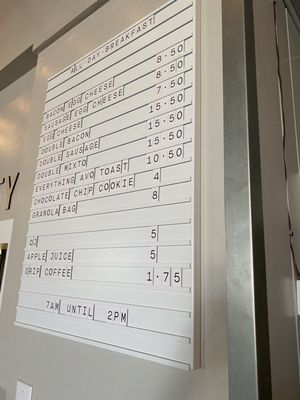 ALL·DAY·BREAKFAST
BACON EGG CHEESE 8·50
SAUSAGE EGG CHEESE 8·50
EGG CHEESE 7·50
DOUBLE BACON 15·50
DOUBLE SAUSAGE 15·50
DOUBLE MIXTO 15·50
EVERYTHING AVO TOAST 10·50
CHOCOLATE CHIP COOKIE 4
GRANOLA BAG 8
OJ 5
APPLE JUICE 5
DRIP COFFEE 1·75
7AM UNTIL 2PM